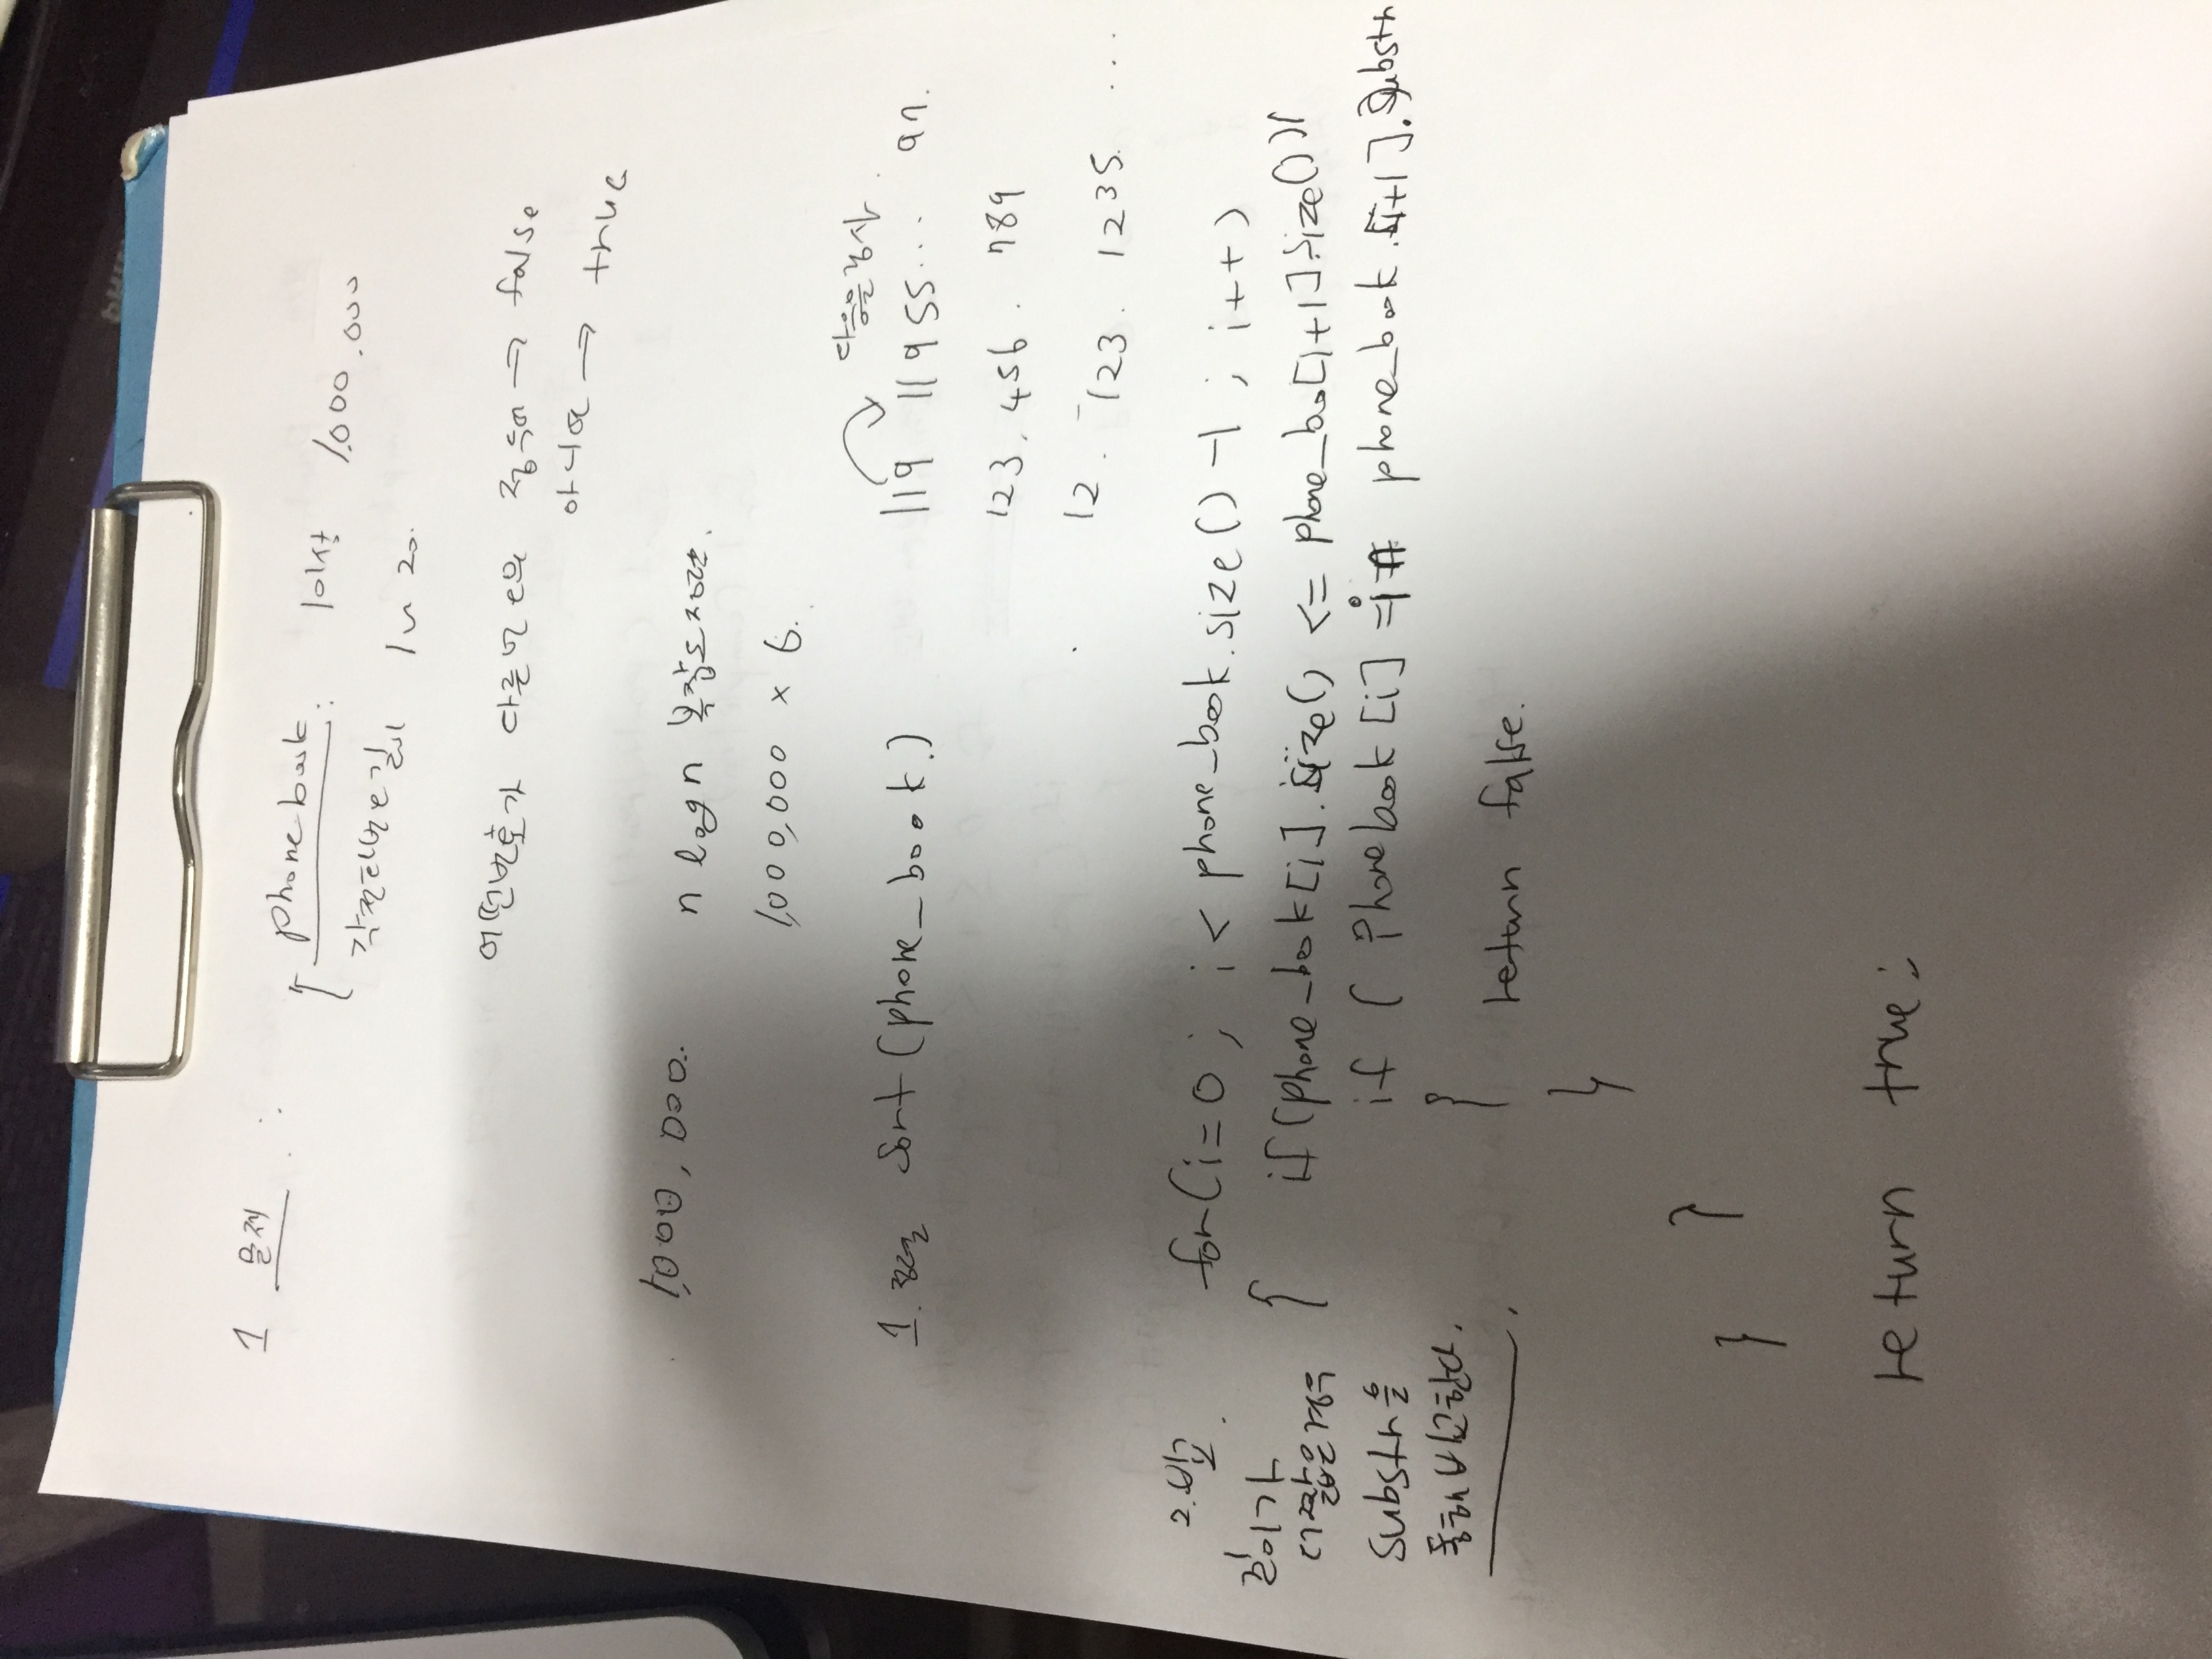 1 문제 :
phone book : 1이상 1,000,000
각 전화번호 길이 1~20.
어떤번호가 다른번호의 접두어 → false
아니요 → true
1,000,000. n log n 복잡도 제한.
1,000,000 × 6.
다음을 검사
1. 정렬 sort (phone_book.) 119 11955... 97.
123, 456. 789
12. 123. 1235. ...
2. 비교 for(i=0; i< phone_book.size()-1; i++)
길이가
더 짧은 경우 { if(phone_book[i].size() <= phone_boo[i+1].size()){
substr을 if ( Phonebook[i] == phone_book.[i+1].substr
통해 비교한다. {
return false.
}
}
}
return true;